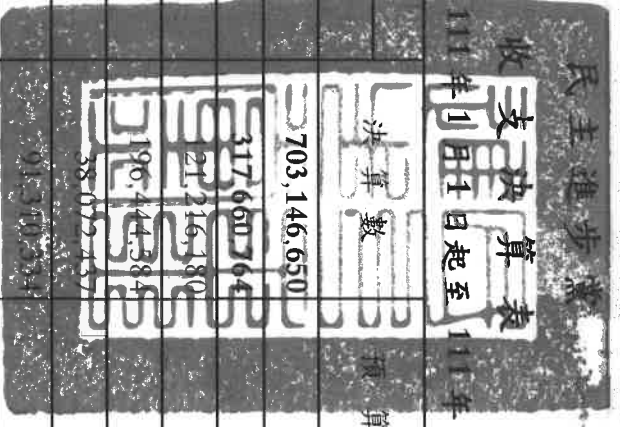 民主進步黨
收支決算表
111年1月1日起至111年
決算數 預算
703,146,650
317,660,764
121,216,180
196,444,584
38,072,437
91,310,334